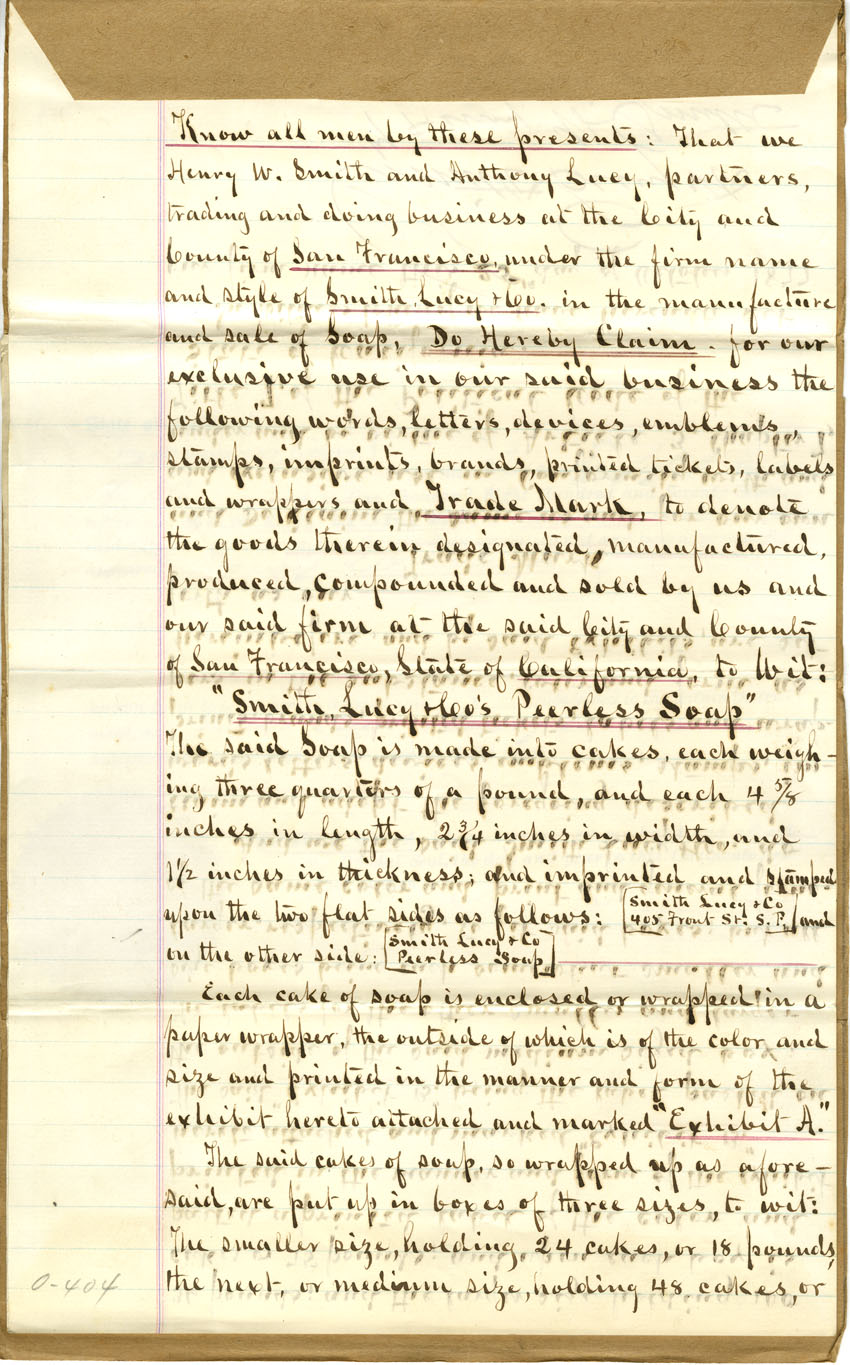 Know all men by these presents: That we
Henry W. Smith and Anthony Lucy, partners,
trading and doing business at the City and
County of San Francisco, under the firm name
and style of Smith, Lucy & Co. in the manufacture
and sale of Soap, Do Hereby Claim. for our
exclusive use in our said business the
following words, letters, devices, emblems,
stamps, imprints, brands, printed tickets, labels
and wrappers and Trade Mark, to denote
the goods therein designated, manufactured,
produced, compounded and sold by us and
our said firm at the said City and County
of San Francisco, State of California, to Wit:
"Smith, Lucy & Co's Peerless Soap"
The said Soap is made into cakes, each weigh-
ing three quarters of a pound, and each 4 5/8
inches in length, 2 3/4 inches in width, and
1 1/2 inches in thickness; and imprinted and stamped
upon the two flat sides as follows: [Smith Lucy & Co
405 Front St: S. F.] and
on the other side: [Smith Lucy & Co
Peerless Soap]
Each cake of soap is enclosed or wrapped in a
paper wrapper, the outside of which is of the color and
size and printed in the manner and form of the
exhibit hereto attached and marked "Exhibit A."
The said cakes of soap, so wrapped up as afore-
said, are put up in boxes of three sizes, to wit:
The smaller size, holding 24 cakes, or 18 pounds,
the next, or medium size, holding 48 cakes, or
0-404